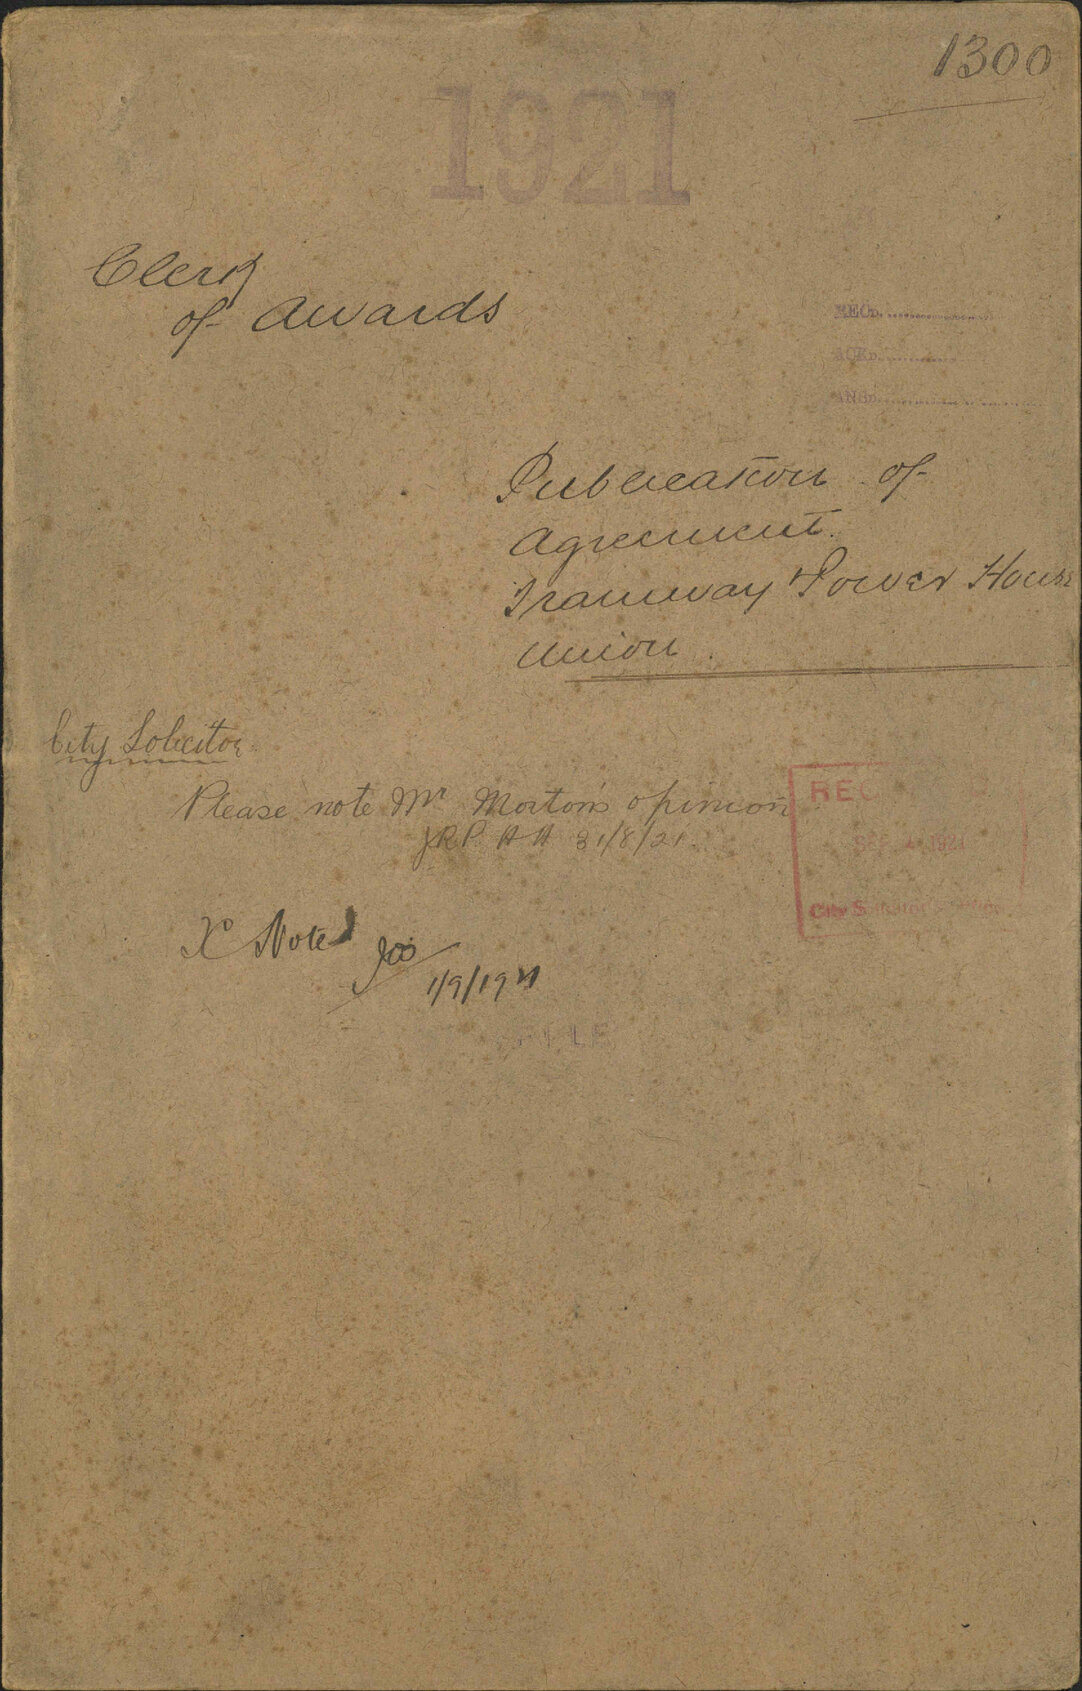 1300
1921
Clerk
of Awards
RECD.
ACKD.
ANSD.
Publication of
Agreement.
Tramway Power House
Union.
City Solicitor
Please note Mr Morton's opinion
JRP AA 31/8/21
REC
SEP 1921
City Solicitor's Office
X Noted
1/9/1921
FILE